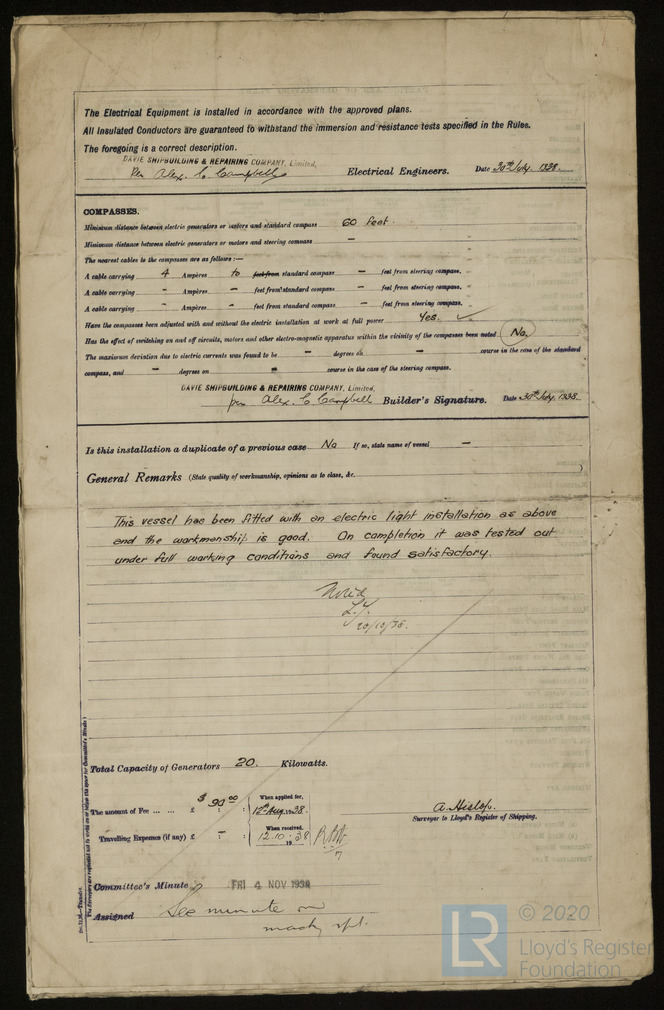 The Electrical Equipment is installed in accordance with the approved plans.
All Insulated Conductors are guaranteed to withstand the immersion and resistance tests specified in the Rules.
The foregoing is a correct description.
DAVIE SHIPBUILDING & REPAIRING COMPANY, Limited,
Per Alex. C Campbell Electrical Engineers. Date 30th July. 1938.
COMPASSES.
Minimum distance between electric generators or motors and standard compass 60 feet.
Minimum distance between electric generators or motors and steering compass –
The nearest cables to the compasses are as follows:—
A cable carrying 4 Ampères to feet from standard compass – feet from steering compass.
A cable carrying - Ampères – feet from standard compass – feet from steering compass.
A cable carrying - Ampères - feet from standard compass – feet from steering compass.
Have the compasses been adjusted with and without the electric installation at work at full power Yes. ✓
Has the effect of switching on and off circuits, motors and other electro-magnetic apparatus within the vicinity of the compasses been noted No.
The maximum deviation due to electric currents was found to be – degrees on – course in the case of the standard
compass, and – degrees on – course in the case of the steering compass.
DAVIE SHIPBUILDING & REPAIRING COMPANY, Limited,
per Alex. C Campbell Builder's Signature. Date 30th July. 1938.
Is this installation a duplicate of a previous case No If so, state name of vessel –
General Remarks (State quality of workmanship, opinions as to class, &c. )
This vessel has been fitted with an electric light installation as above
and the workmanship is good. On completion it was tested out
under full working conditions and found satisfactory.
Noted
L.Y.
20/10/38.
Total Capacity of Generators 20. Kilowatts.
The amount of Fee ... ... £ $ 90.00 : When applied for, 12th Aug. 1938.
A. Hislop.
Surveyor to Lloyd's Register of Shipping.
Travelling Expenses (if any) £ – : When received, 12.10.38 19
Committee's Minute FRI 4 NOV 1938
Assigned See minute on
machy rpt.
The Surveyors are requested not to write on or below the space for Committee's Minute.)
© 2020
LR
Lloyd's Register
Foundation